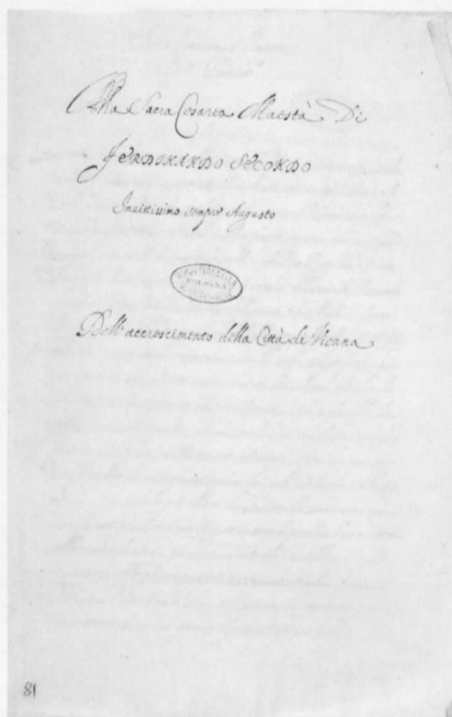 Alla Sacra Cesarea Maestà Di
FERDINANDO SECONDO
Invittissimo sempre Augusto
Dell'accrescimento della Città di Vienna
81